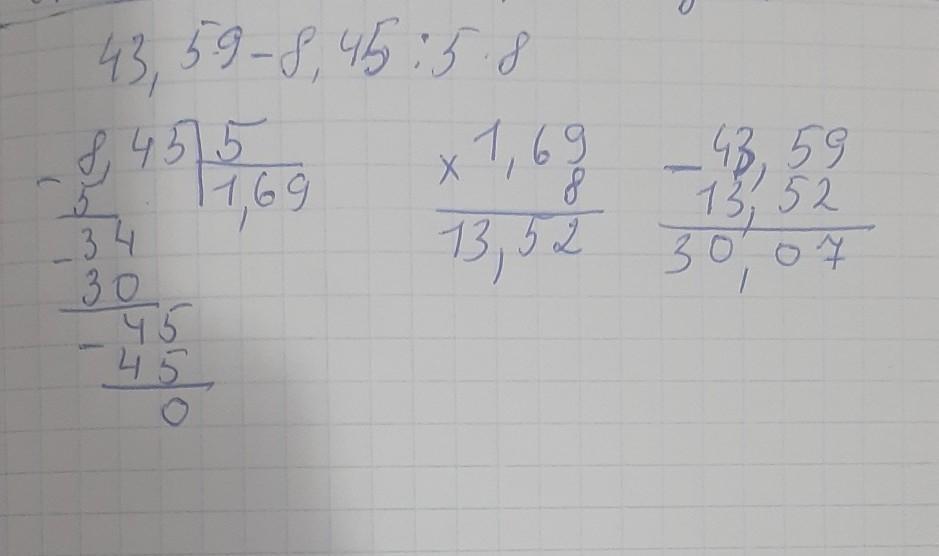 43,59-8,45:5·8
-8,45 5
5 1,69
-34
30
-45
45
0
×1,69
8
13,52
-43,59
13,52
30,07